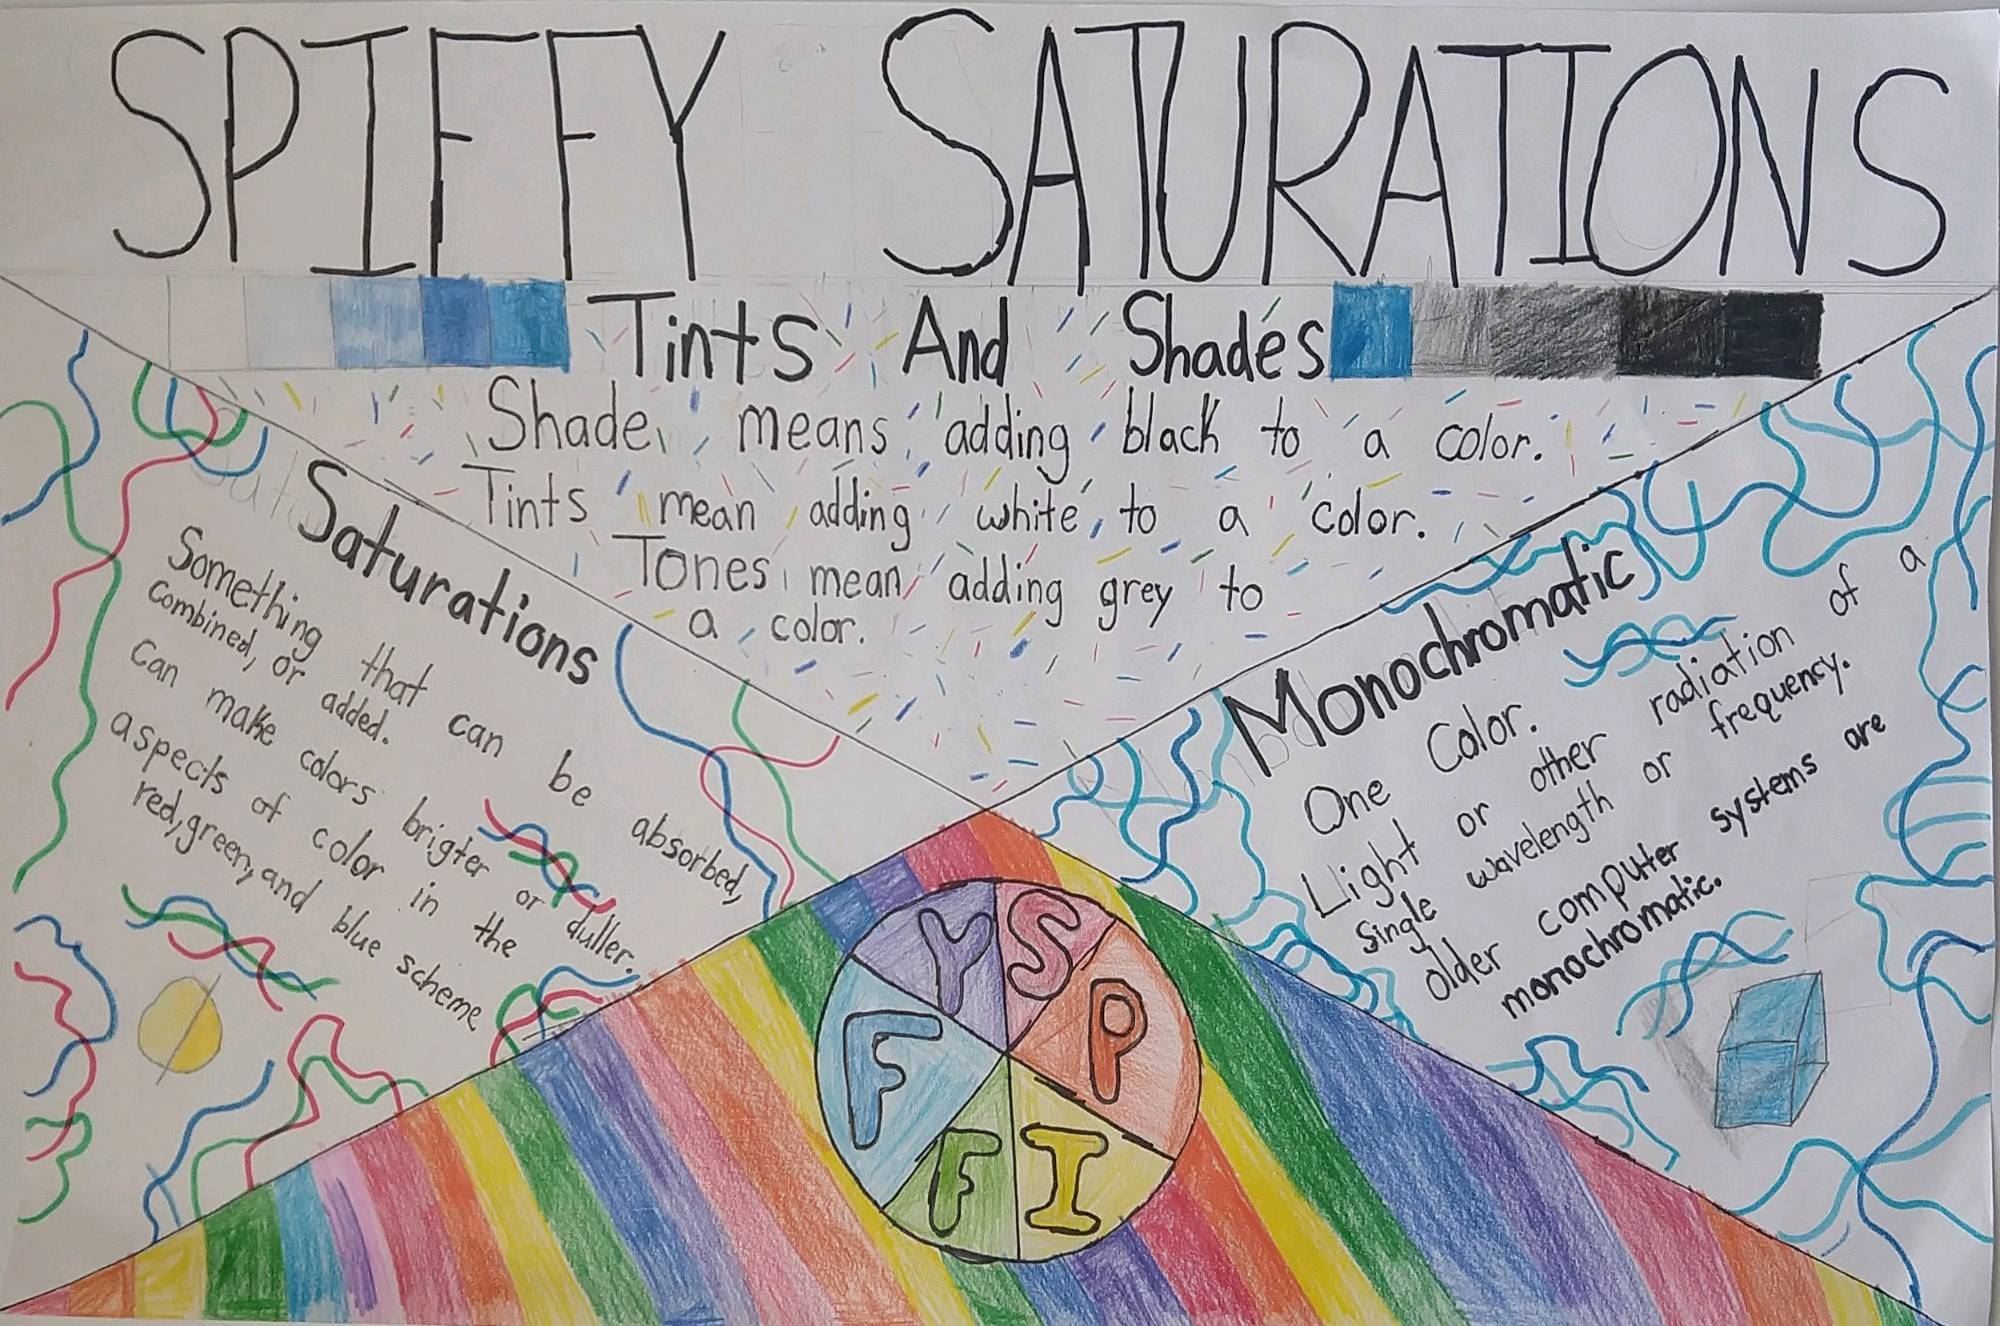 SPIFFY SATURATIONS
Tints And Shades
Shade means adding black to a color.
Tints mean adding white to a color.
Tones mean adding grey to
a color.
Saturations
Something that can be absorbed,
combined, or added.
Can make colors brigter or duller.
aspects of color in the
red, green, and blue scheme
Monochromatic
One Color.
Light or other radiation of a
single wavelength or frequency.
older computer systems are
monochromatic.
S
P
I
F
F
Y